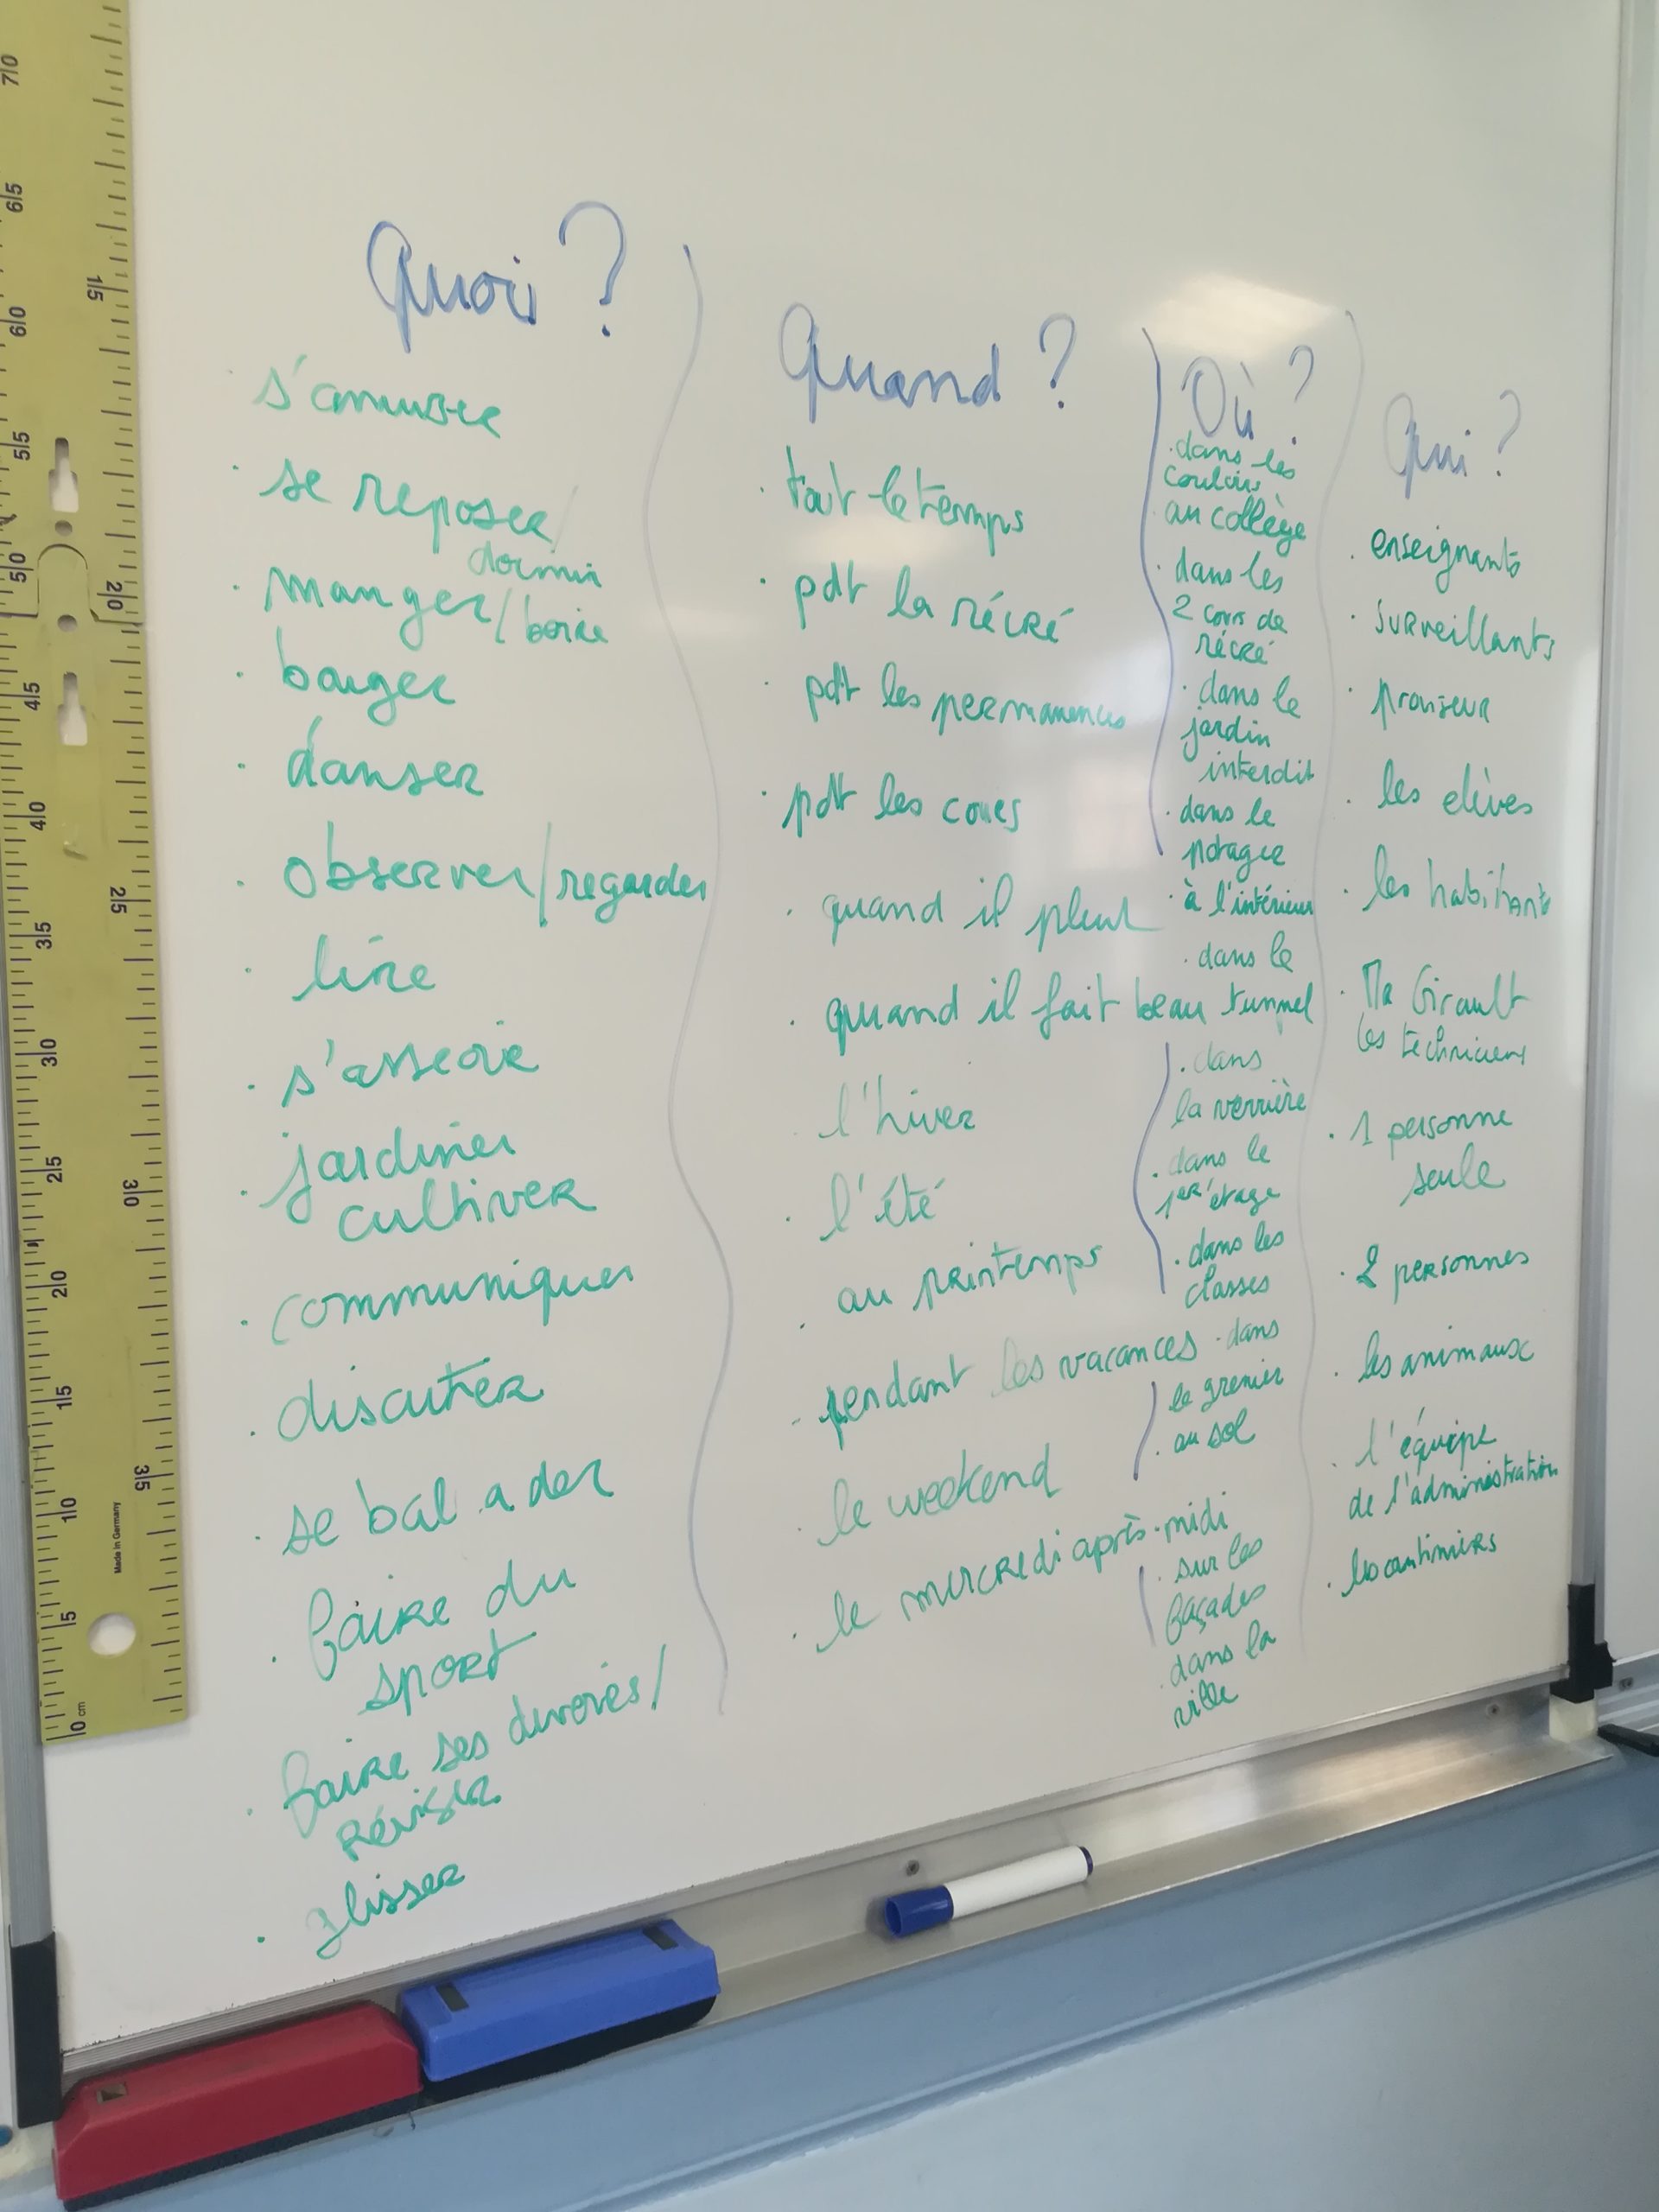 Quoi ?
s'amuser
. se reposer /
dormir
. manger / boire
. bouger
. danser
. observer / regarder
. lire
. s'asseoir
. jardiner
cultiver
. communiquer
. discuter
. se balader
. faire du
sport
. faire ses devoirs /
réviser
. glisser
Quand ?
. tout le temps
. pdt la récré
. pdt les permanences
. pdt les cours
. quand il pleut
. quand il fait beau
. l'hiver
. l'été
. au printemps
. pendant les vacances
. le weekend
. le mercredi après-midi
Où ?
. dans les
couloirs
au collège
. dans les
2 cours de
récré
. dans le
jardin
interdit
. dans le
potager
. à l'intérieur
. dans le
tunnel
. dans
la verrière
. dans le
1er étage
. dans les
classes
. dans
le grenier
. au sol
. sur les
façades
. dans la
ville
Qui ?
. enseignants
. surveillants
. proviseur
. les elèves
. les habitants
. Mr Girault
les techniciens
. 1 personne
seule
. 2 personnes
. les animaux
. l'équipe
de l'administration
. les cantiniers
Made in Germany
0 cm
5
10
15
20
25
30
35
40
45
50
55
60
65
70
15
20
25
30
35